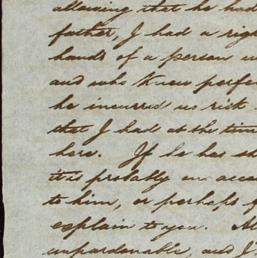 allowing that he had
father, I had a righ
hands of a person w
and who knew perfe
he incurred no risk
that I had at the tim
here. If he has sh
it is probably on acco
to him, or perhaps f
explain to you. Al
unpardonable, and I